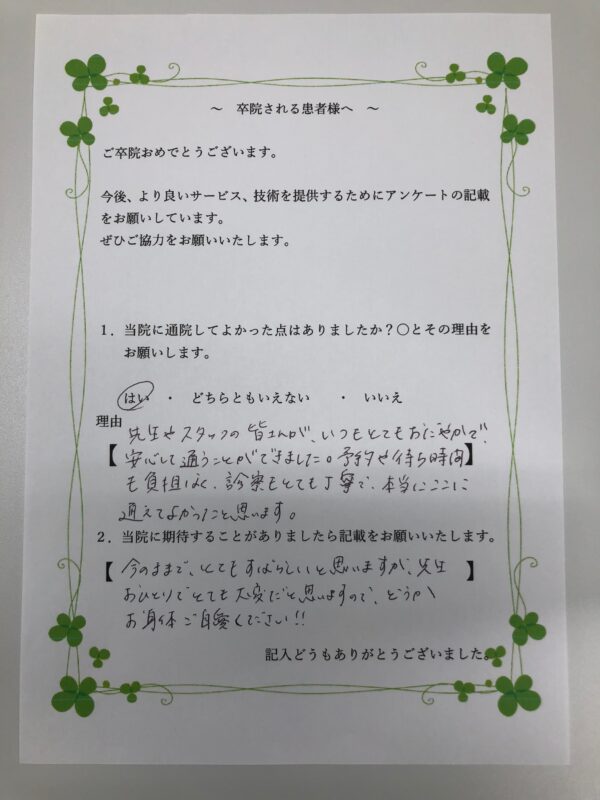 ～ 卒院される患者様へ ～
ご卒院おめでとうございます。
今後、より良いサービス、技術を提供するためにアンケートの記載
をお願いしています。
ぜひご協力をお願いいたします。
1．当院に通院してよかった点はありましたか？〇とその理由を
お願いします。
はい ・ どちらともいえない ・ いいえ
理由
先生やスタッフの皆さんが、いつもとてもおだやかで、
【安心して通うことができました。予約や待ち時間】
も負担なく、診察もとても丁寧で、本当にここに
通えてよかったと思います。
2．当院に期待することがありましたら記載をお願いいたします。
【今のままで、とてもすばらしいと思いますが、先生】
おひとりでとても大変だと思いますので、どうか
お身体ご自愛ください!!
記入どうもありがとうございました。